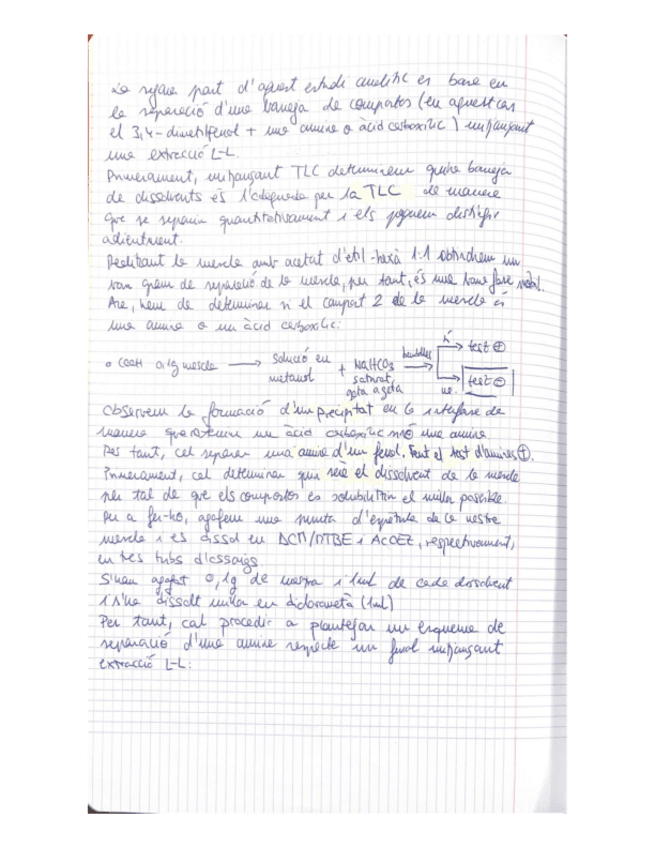 La segona part d'aquest estudi analític es basa en
la separació d'una barreja de compostos (en aquest cas
el 3,4-dimetilfenol + una amina o àcid carboxílic) mitjançant
una extracció L-L.
Primerament, mitjançant TLC determinem quina barreja
de dissolvents és l'adequada per la TLC de manera
que se separin quantitativament i els puguem distingir
adientment.
Realitzant la mescla amb acetat d'etil-hexà 1:1 obtindrem un
bon grau de separació de la mescla, per tant, és una bona fase mòbil.
Ara, hem de determinar si el compost 2 de la mescla és
una amina o un àcid carboxílic:
• COOH 0,1g mescla → solució en metanol + NaHCO3 saturat, gota a gota → bombolles
sí → test ⊕
no → test ⊖
Observem la formació d'un precipitat en la interfase de
manera que un àcid carboxílic sinó una amina.
Per tant, cal separar una amina d'un fenol. Fent el test d'amines ⊕.
Primerament, cal determinar quin serà el dissolvent de la mescla
per tal de que els compostos es solubilitzin el millor possible.
Per a fer-ho, agafem una punta d'espàtula de la nostra
mescla i es dissol en DCM/MTBE i AcOEt, respectivament,
en tres tubs d'assaigs
S'han agafat 0,1g de mostra i 1mL de cada dissolvent
i s'ha dissolt millor en diclorometà (1mL)
Per tant, cal procedir a plantejar un esquema de
separació d'una amina respecte un fenol mitjançant
extracció L-L: